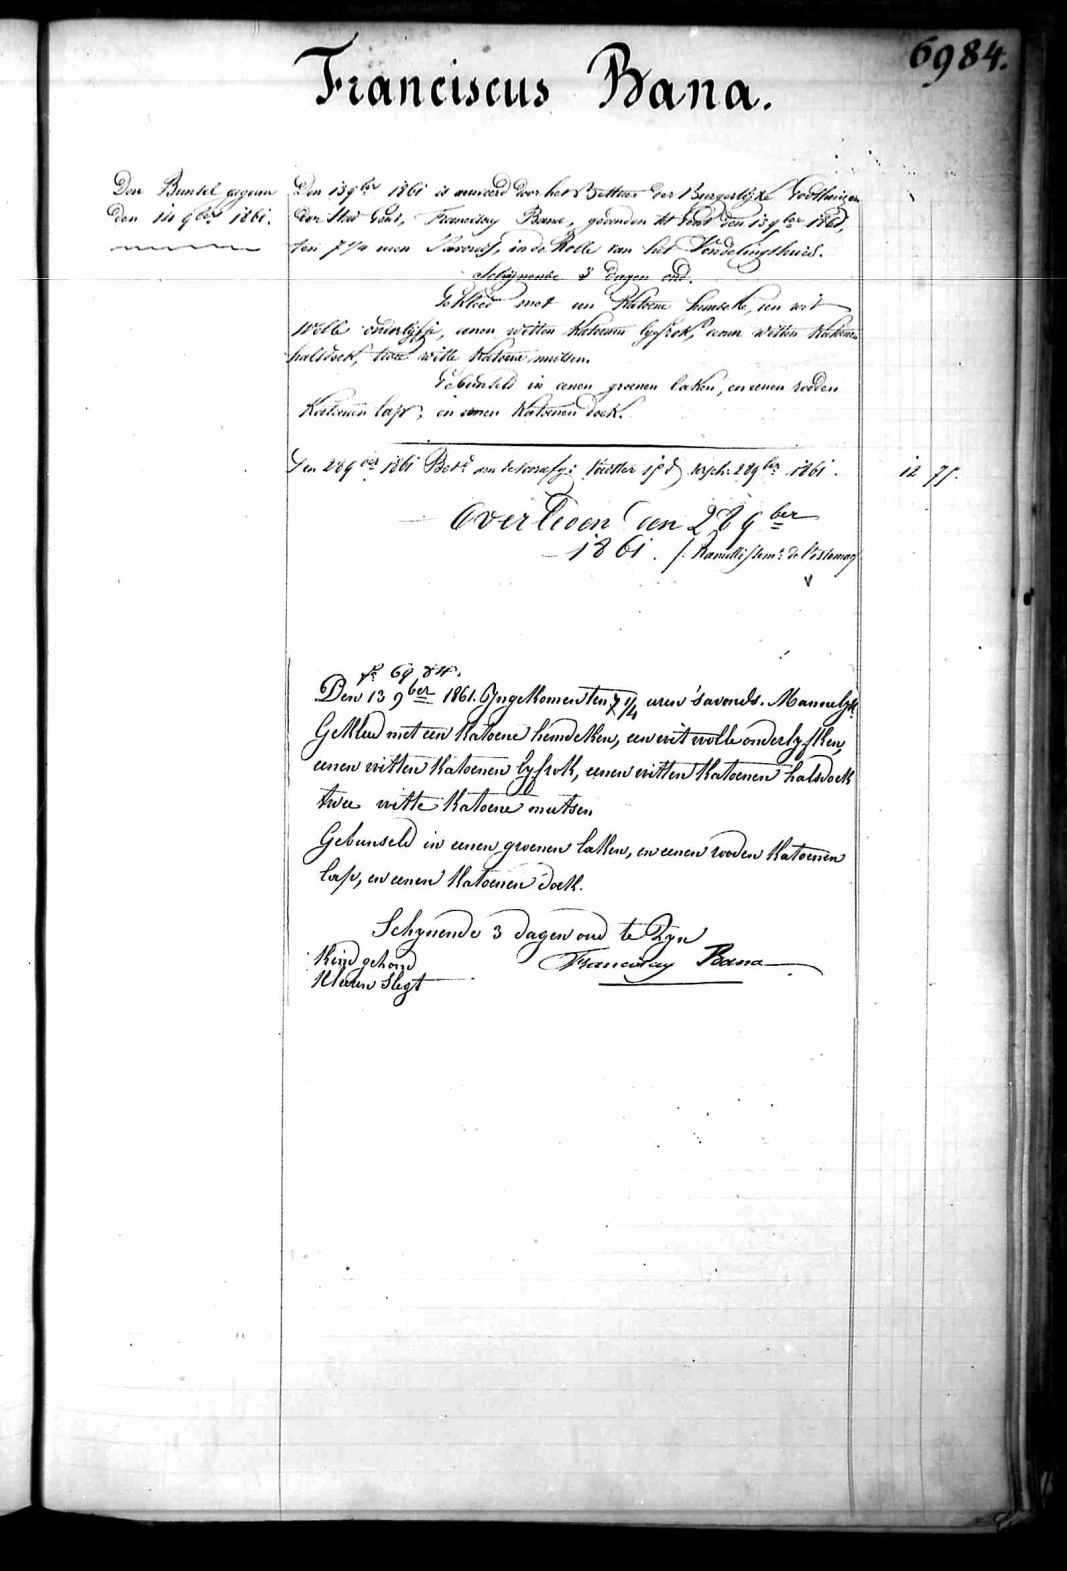 6984.
Franciscus Bana.
Den Bunsel gegeven
den 14 9ber 1861.
Den 13 9ber 1861 is aenveerd door het Bestier der Burgerlijke Godshuizen
der Stad Gent, Franciscus Bana, gevonden tot Gent den 13 9ber 1861,
ten 7 1/4 uren 'savonds, in de Rolle van het Vondelingshuis.
Schynende 3 dagen oud.
Gekleed met een Katoene hemdeke, een wit
wolle onderlyfje, eenen witten Katoenen lyfrok, eenen witten Katoenen
halsdoek, twee witte Katoene mutsen.
Gebunseld in eenen groenen laken, en eenen rooden
Katoenen lap, en eenen Katoenen doek.
Den 28 9ber 1861 Bet. aen de 28 9ber 1861. 12 75.
Overleden den 28 9ber
1861.
No 6984.
Den 13 9ber 1861. Yngekomen ten 7 1/4 uren 'savonds. Mannelyk
Gekleed met een Katoene hemdeken, een wit wolle onderlyfken,
eenen witten Katoenen lyfrok, eenen witten Katoenen halsdoek
twee witte Katoene mutsen
Gebunseld in eenen groenen laken, en eenen rooden Katoenen
lap, en eenen Katoenen doek.
Schynende 3 dagen oud te Zyn
Kind gehond
Franciscus Bana
Kleeren Slegt